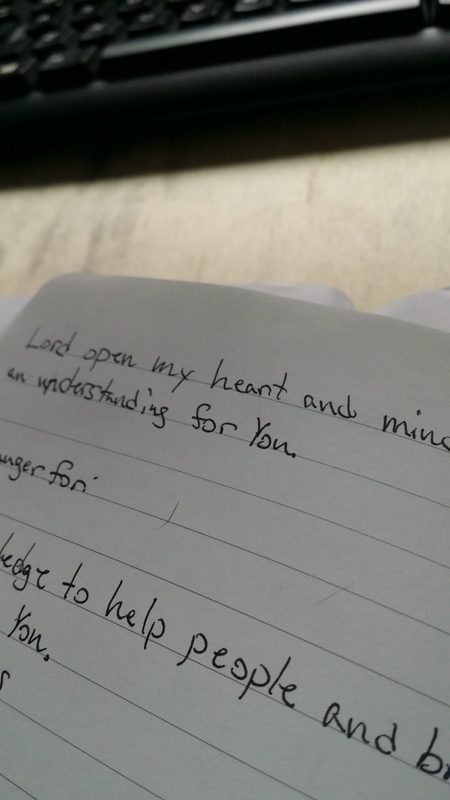 Lord open my heart and mind
an understanding for You.
unger for:
ledge to help people and br
You.
s